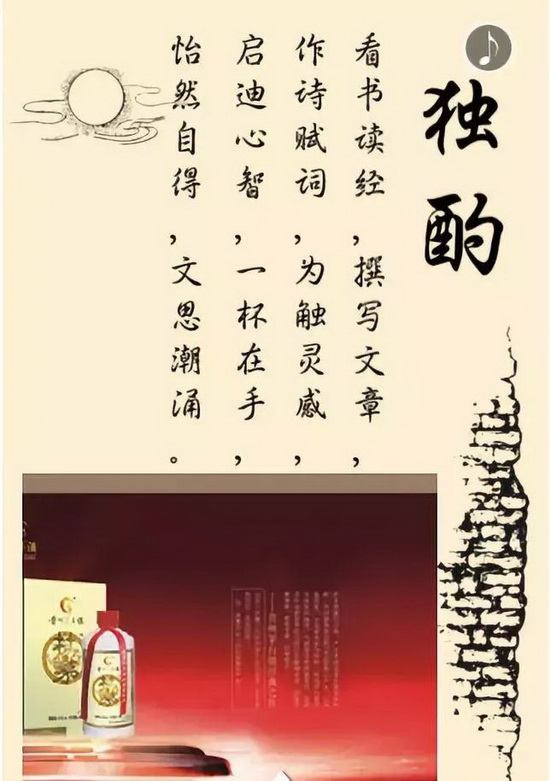 独酌
看书读经,撰写文章,
作诗赋词,为触灵感,
启迪心智,一杯在手,
怡然自得,文思潮涌。